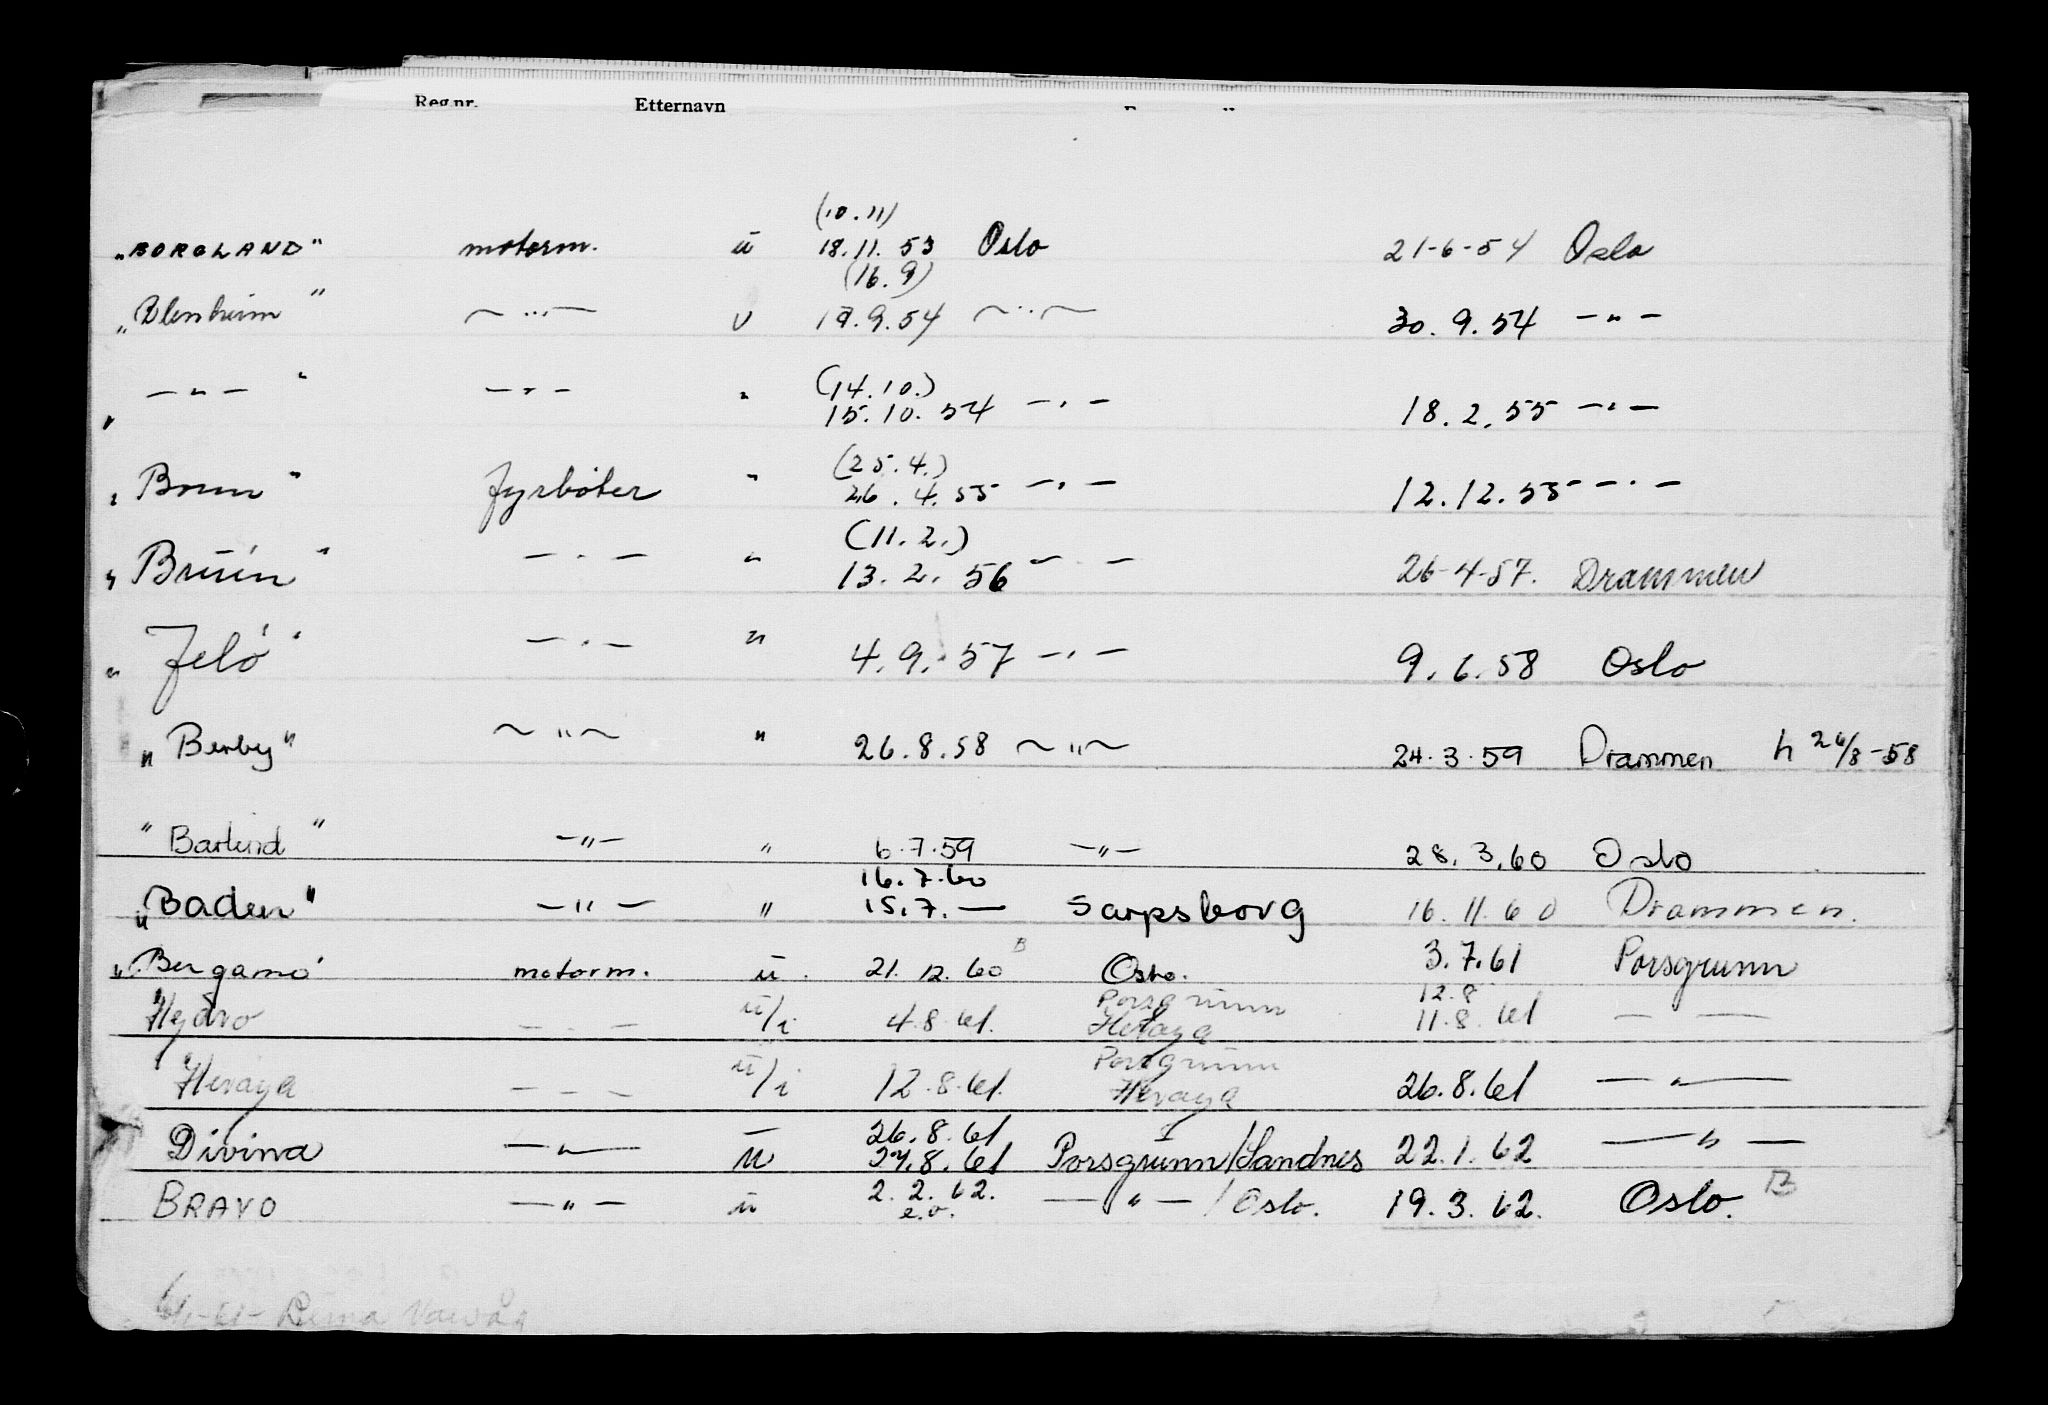 Reg.nr. Etternavn
(10.11)
"BORGLAND" motorm. ū 18.11.53 Oslo 21-6-54 Oslo
(16.9)
"Blenheim" — " — u 19.9.54 — " — 30.9.54 — " —
(14.10.)
" — " — " — " — " 15.10.54 — " — 18.2.55 — " —
(25.4.)
"Bruun" fyrbøter " 26.4.55 — " — 12.12.55 — " —
(11.2.)
"Bruun" — " — " 13.2.56 — " — 26-4-57. Drammen
"Jelø" — " — " 4.9.57 — " — 9.6.58 Oslo
"Berby" — " — " 26.8.58 — " — 24.3.59 Drammen h 26/8-58
"Barlind" — " — " 6.7.59 — " — 28.3.60 Oslo
16.7.60
"Baden" — " — " 15.7. — Sarpsborg 16.11.60 Drammen.
"Bergamo" motorm. ū. 21.12.60 B Oslo. 3.7.61 Porsgrunn
Porsgrunn 12.8
"Hydro — " — ū/i 4.8.61. Herøya 11.8.61 — —
Porsgrunn
"Herøya — - — ū/i 12.8.61. Herøya 26.8.61 — " —
26.8.61
Divina — " — ū 27.8.61 Porsgrunn/Sandnes 22.1.62 — " —
BRAVO — " — ū 2.2.62. — " — / Oslo. 19.3.62. Oslo. B
e.o.